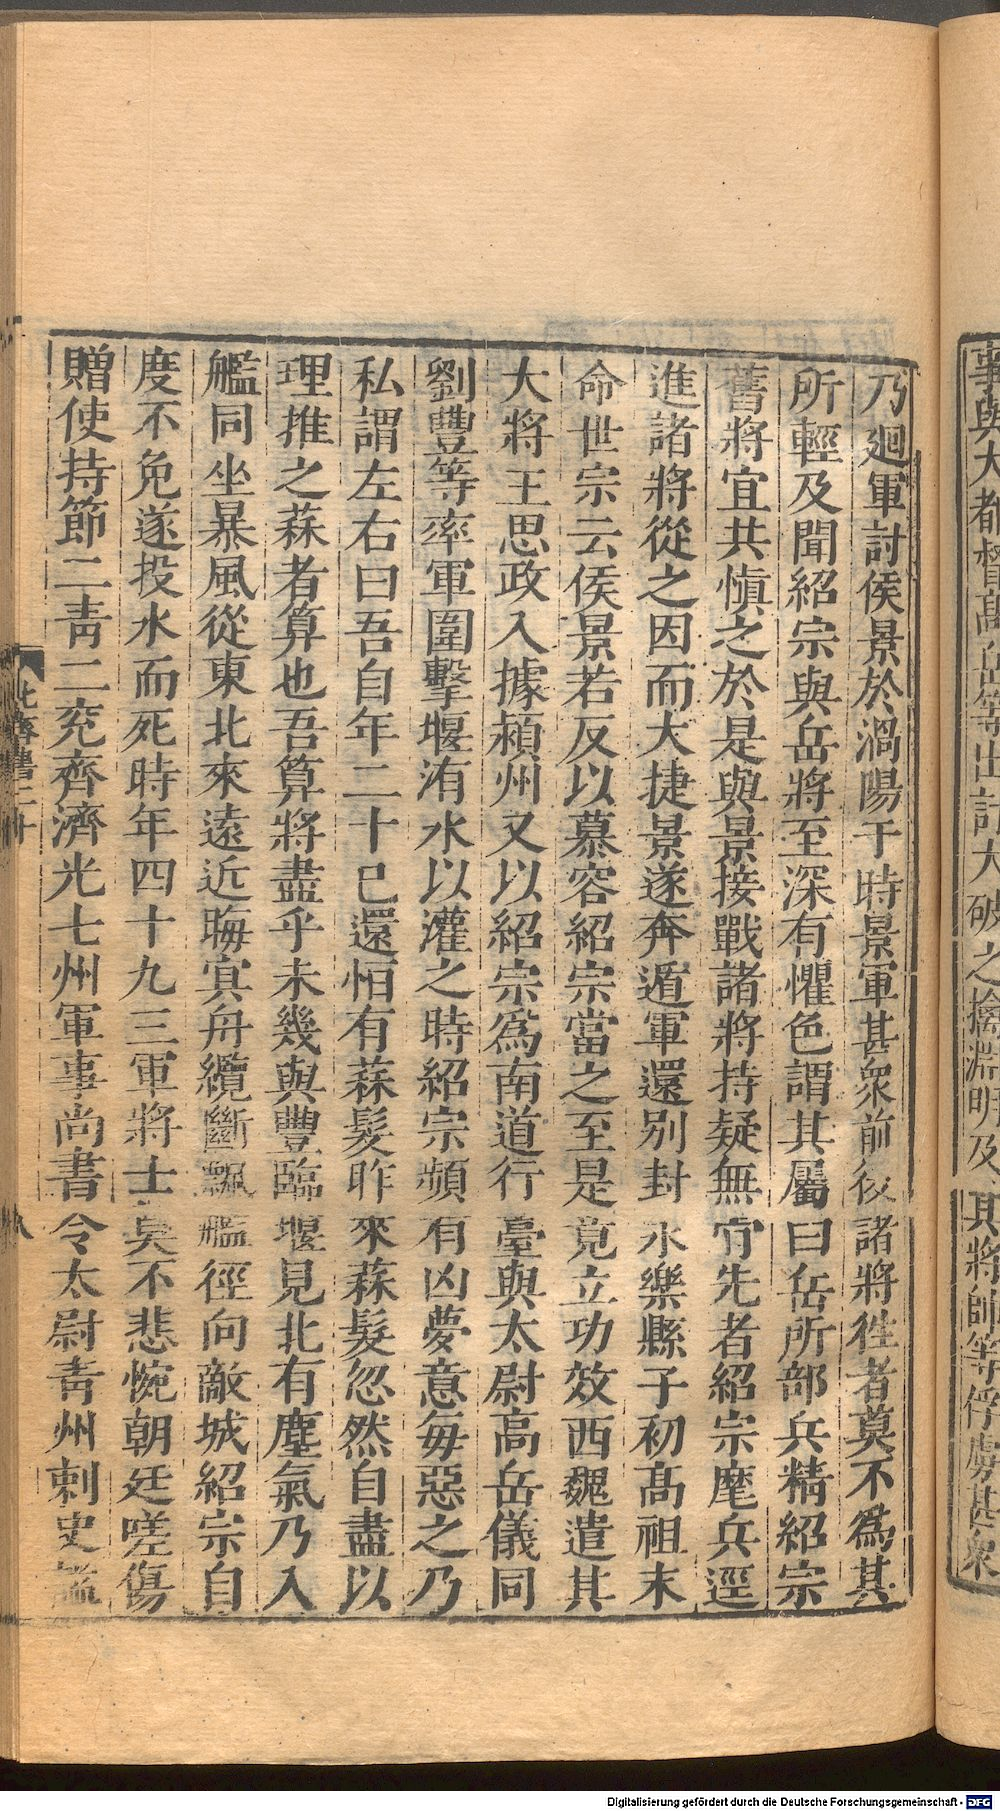 事與大都督高岳等出討大破之擒淵明及其將帥等俘虜甚衆
乃廻軍討侯景於渦陽于時景軍甚衆前後諸將徃者莫不爲其
所輕及聞紹宗與岳將至深有懼色謂其屬曰岳所部兵精紹宗
舊將宜共慎之於是與景接戰諸將持疑無肯先者紹宗麾兵逕
進諸將從之因而大捷景遂奔遁軍還别封永樂縣子初高祖末
命世宗云侯景若反以慕容紹宗當之至是竟立功效西魏遣其
大將王思政入據潁州又以紹宗爲南道行臺與太尉高岳儀同
劉豐等率軍圍擊堰洧水以灌之時紹宗頻有凶夢意每惡之乃
私謂左右曰吾自年二十已還恒有蒜髮昨來蒜髮忽然自盡以
理推之蒜者算也吾算將盡乎未幾與豐臨堰見北有塵氣乃入
艦同坐暴風從東北來遠近晦㝠舟纜斷飄艦徑向敵城紹宗自
度不免遂投水而死時年四十九三軍將士莫不悲惋朝廷嗟傷
贈使持節二青二兖齊濟光七州軍事尚書令太尉青州刺史謚
北齊書二十
八
Digitalisierung gefördert durch die Deutsche Forschungsgemeinschaft - DFG